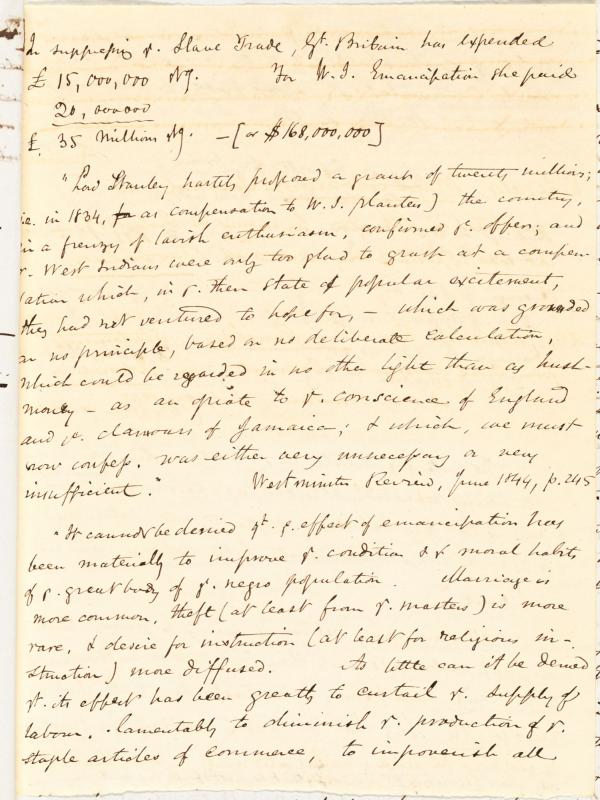 In suppressing ye. Slave Trade, Gt. Britain has expended
£ 15,000,000 Stg. For W. I. Emancipation she paid
20,000000
£. 35 Millions Stg. — [or $168,000,000]
"Lord Stanley hastily proposed a grant of twenty millions;
i.e. in 1834, as compensation to W. I. planters) the country,
in a frenzy of lavish enthusiasm, confirmed ye. offer; and
ye. West Indians were only too glad to grasp at a compen-
sation which, in ye. then state of popular excitement,
they had not ventured to hope for, — which was grounded
on no principle, based on no deliberate calculation,
which could be regarded in no other light than as hush-
money — as an opiate to ye. conscience of England
and ye. clamours of Jamaica; & which, we must
now confess, was either very unnecessary or very
insufficient." Westminster Review, June 1844, p. 245
"It cannot be denied yt. ye. effect of emancipation has
been materially to improve ye. condition & ye moral habits
of ye. great body of ye. negro population. Marriage is
more common, theft (at least from ye. masters) is more
rare, & desire for instruction (at least for religious in-
struction) more diffused. As little can it be denied
yt. its effect has been greatly to curtail ye. supply of
labour, lamentably to diminish ye. production of ye.
staple articles of commerce, to impoverish all